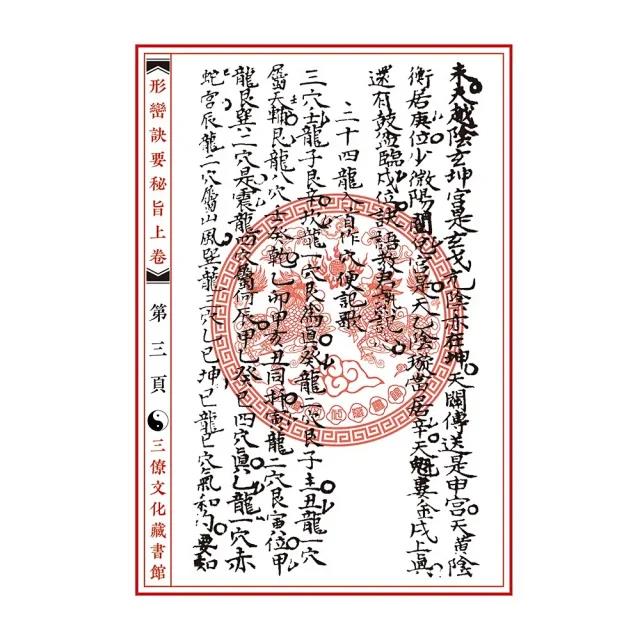 未天越陰玄坤宮是玄戈亢陰亦在坤天關傳送是申宮天黃陰
衡居庚位少微陽闔兌宮是天乙陰璇當居辛天魁婁金戌上眞
還有鼓盆臨戌位訣語教君
二十四龍入首作穴便記歌
三穴壬龍子艮辛坎龍一穴艮為真癸龍二穴艮子主丑龍一穴
屬天輔艮龍八穴壬癸乾乙卯甲亥丑同排寅龍二穴艮寅位甲
龍艮巽二穴是震龍四穴屬何辰甲乙癸巳四穴眞乙龍一穴赤
蛇宮辰龍二穴屬山風巽龍三穴乙巳坤巳龍巳穴氣和 要知
形巒訣要秘旨上卷
第三頁
三僚文化藏書館